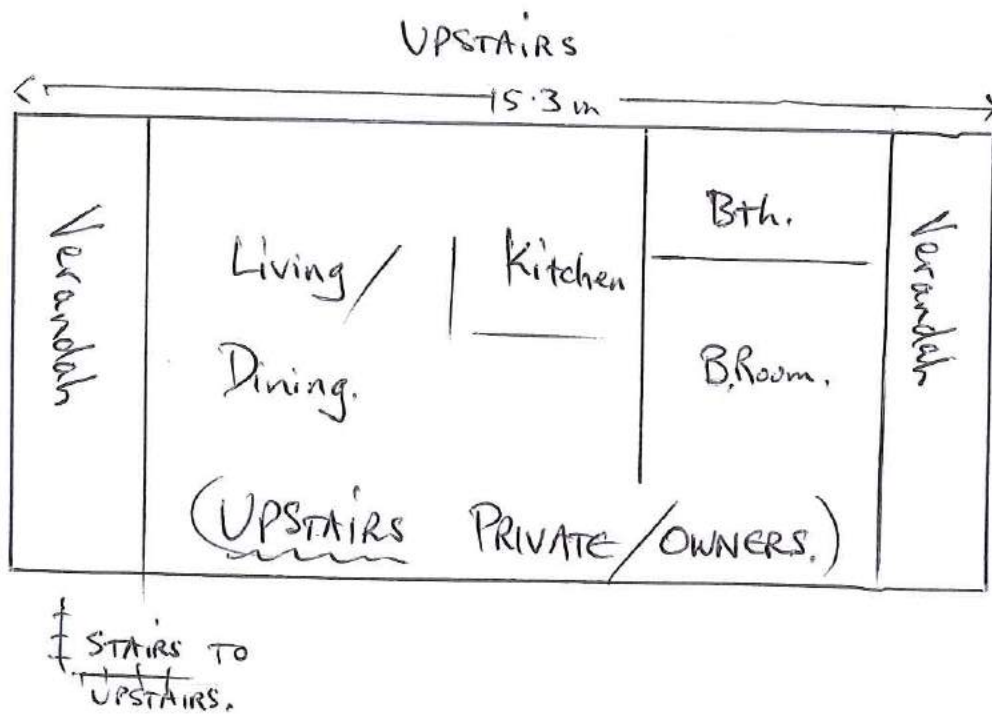 UPSTAIRS
15.3 m
Verandah
Living/
Dining.
Kitchen
Bth.
B.Room.
Verandah
(UPSTAIRS PRIVATE/OWNERS.)
STAIRS TO
UPSTAIRS.